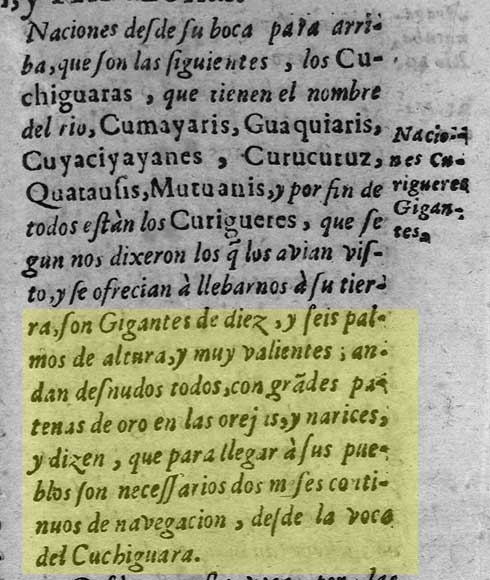 Naciones desde su boca para arri-
ba, que son las siguientes, los Cu-
chiguaras, que tienen el nombre
del rio, Cumayaris, Guaquiaris,
Cuyaciyayanes, Curucuruz,
Quatausis, Mutuanis, y por fin de
todos estàn los Curigueres, que se
gun nos dixeron los q̃ los avian vis-
to, y se ofrecian à llebarnos à su tier-
ra, son Gigantes de diez, y seis pal-
mos de altura, y muy valientes; an-
dan desnudos todos, con grãdes pa-
tenas de oro en las orejas, y narices,
y dizen, que para llegar à sus pue-
blos son necessarios dos meses conti-
nuos de navegacion, desde la voca
del Cuchiguara.
Nacio-
nes Cu-
rigueres
Gigan-
tes.